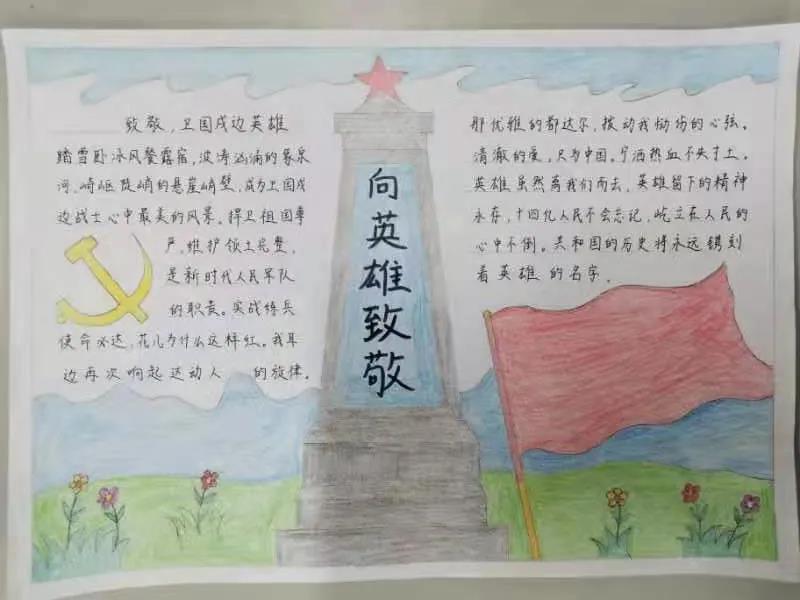 致敬,卫国戍边英雄
踏雪卧冰风餐露宿,波涛汹涌的象泉
河,崎岖陡峭的悬崖峭壁,成为卫国戍
边战士心中最美的风景。捍卫祖国尊
严,维护领土完整,
是新时代人民军队
的职责。实战练兵
使命必达,花儿为什么这样红。我耳
边再次响起这动人 的旋律。
向英雄致敬
那优雅的都达尔,拨动我忧伤的心弦。
清澈的爱,只为中国。宁洒热血不失寸土。
英雄虽然离我们而去,英雄留下的精神
永存,十四亿人民不会忘记,屹立在人民的
心中不倒。共和国的历史将永远镌刻
着英雄的名字.